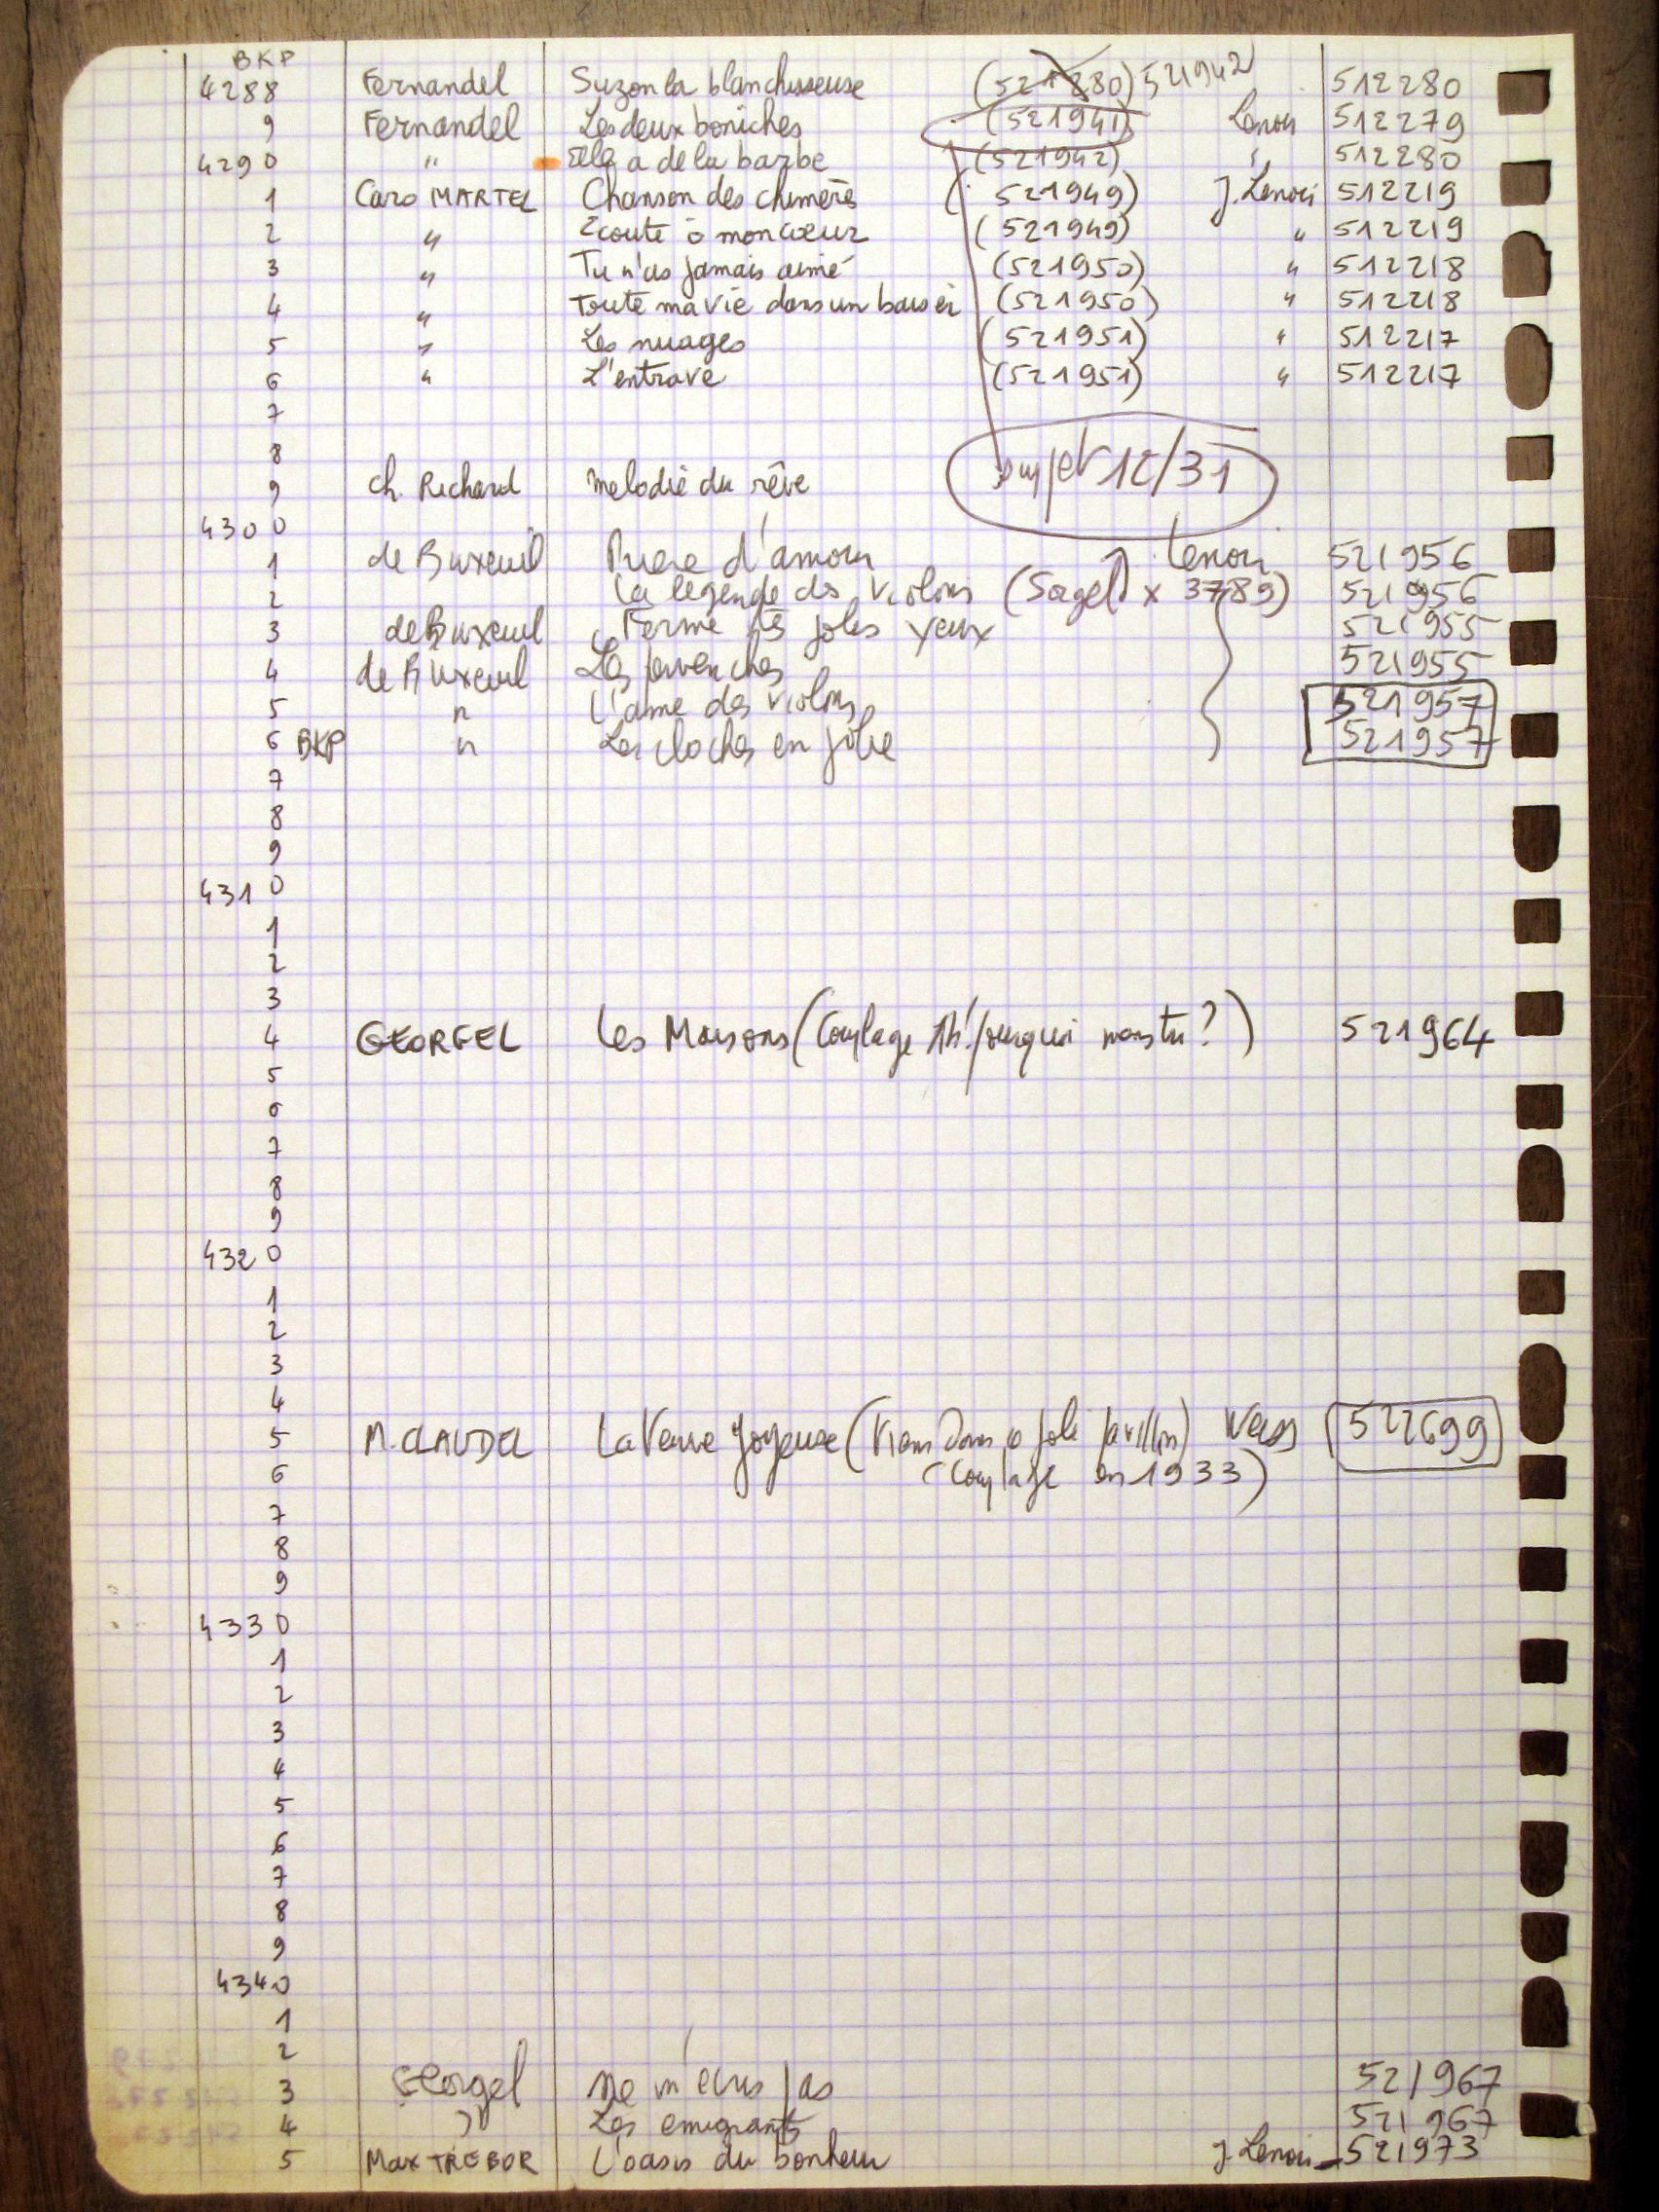 BKP
4288 Fernandel Suzon la blanchisseuse (521280) 521942 512280
9 Fernandel Les deux boniches (521941) Lenoir 512279
4290 " Elle a de la barbe (521942) " 512280
1 Caro MARTEL Chanson des chimères (521949) J. Lenoir 512219
2 " Ecoute ô mon cœur (521949) " 512219
3 " Tu n'as jamais aimé (521950) " 512218
4 " Toute ma vie dans un baiser (521950) " 512218
5 " Les nuages (521951) " 512217
6 " L'entrave (521951) " 512217
7
8
9 ch. Richard melodie du rêve 12/31
4300
1 de Buxeuil Prière d'amour Lenoir 521956
2 La légende ds violons (Sorgel x 3789) 521956
3 de Buxeuil Ferme tes jolis yeux 521955
4 de Buxeuil Les pervenches 521955
5 " L'ame des violons 521957
6 BKP " Les cloches en folie 521957
7
8
9
4310
1
2
3
4 GEORGEL Les Maisons (Couplage Ah! pourquoi mens tu?) 521964
5
6
7
8
9
4320
1
2
3
4
5 M. CLAUDEL La Veuve Joyeuse (Viens dans ce joli pavillon) Weiss 522699
6 (couplage en 1933)
7
8
9
4330
1
2
3
4
5
6
7
8
9
4340
1
2
3 Georgel Ne m'écris pas 521967
4 " Les emigrants 521967
5 Max TREBOR L'oasis du bonheur J. Lenoir 521973